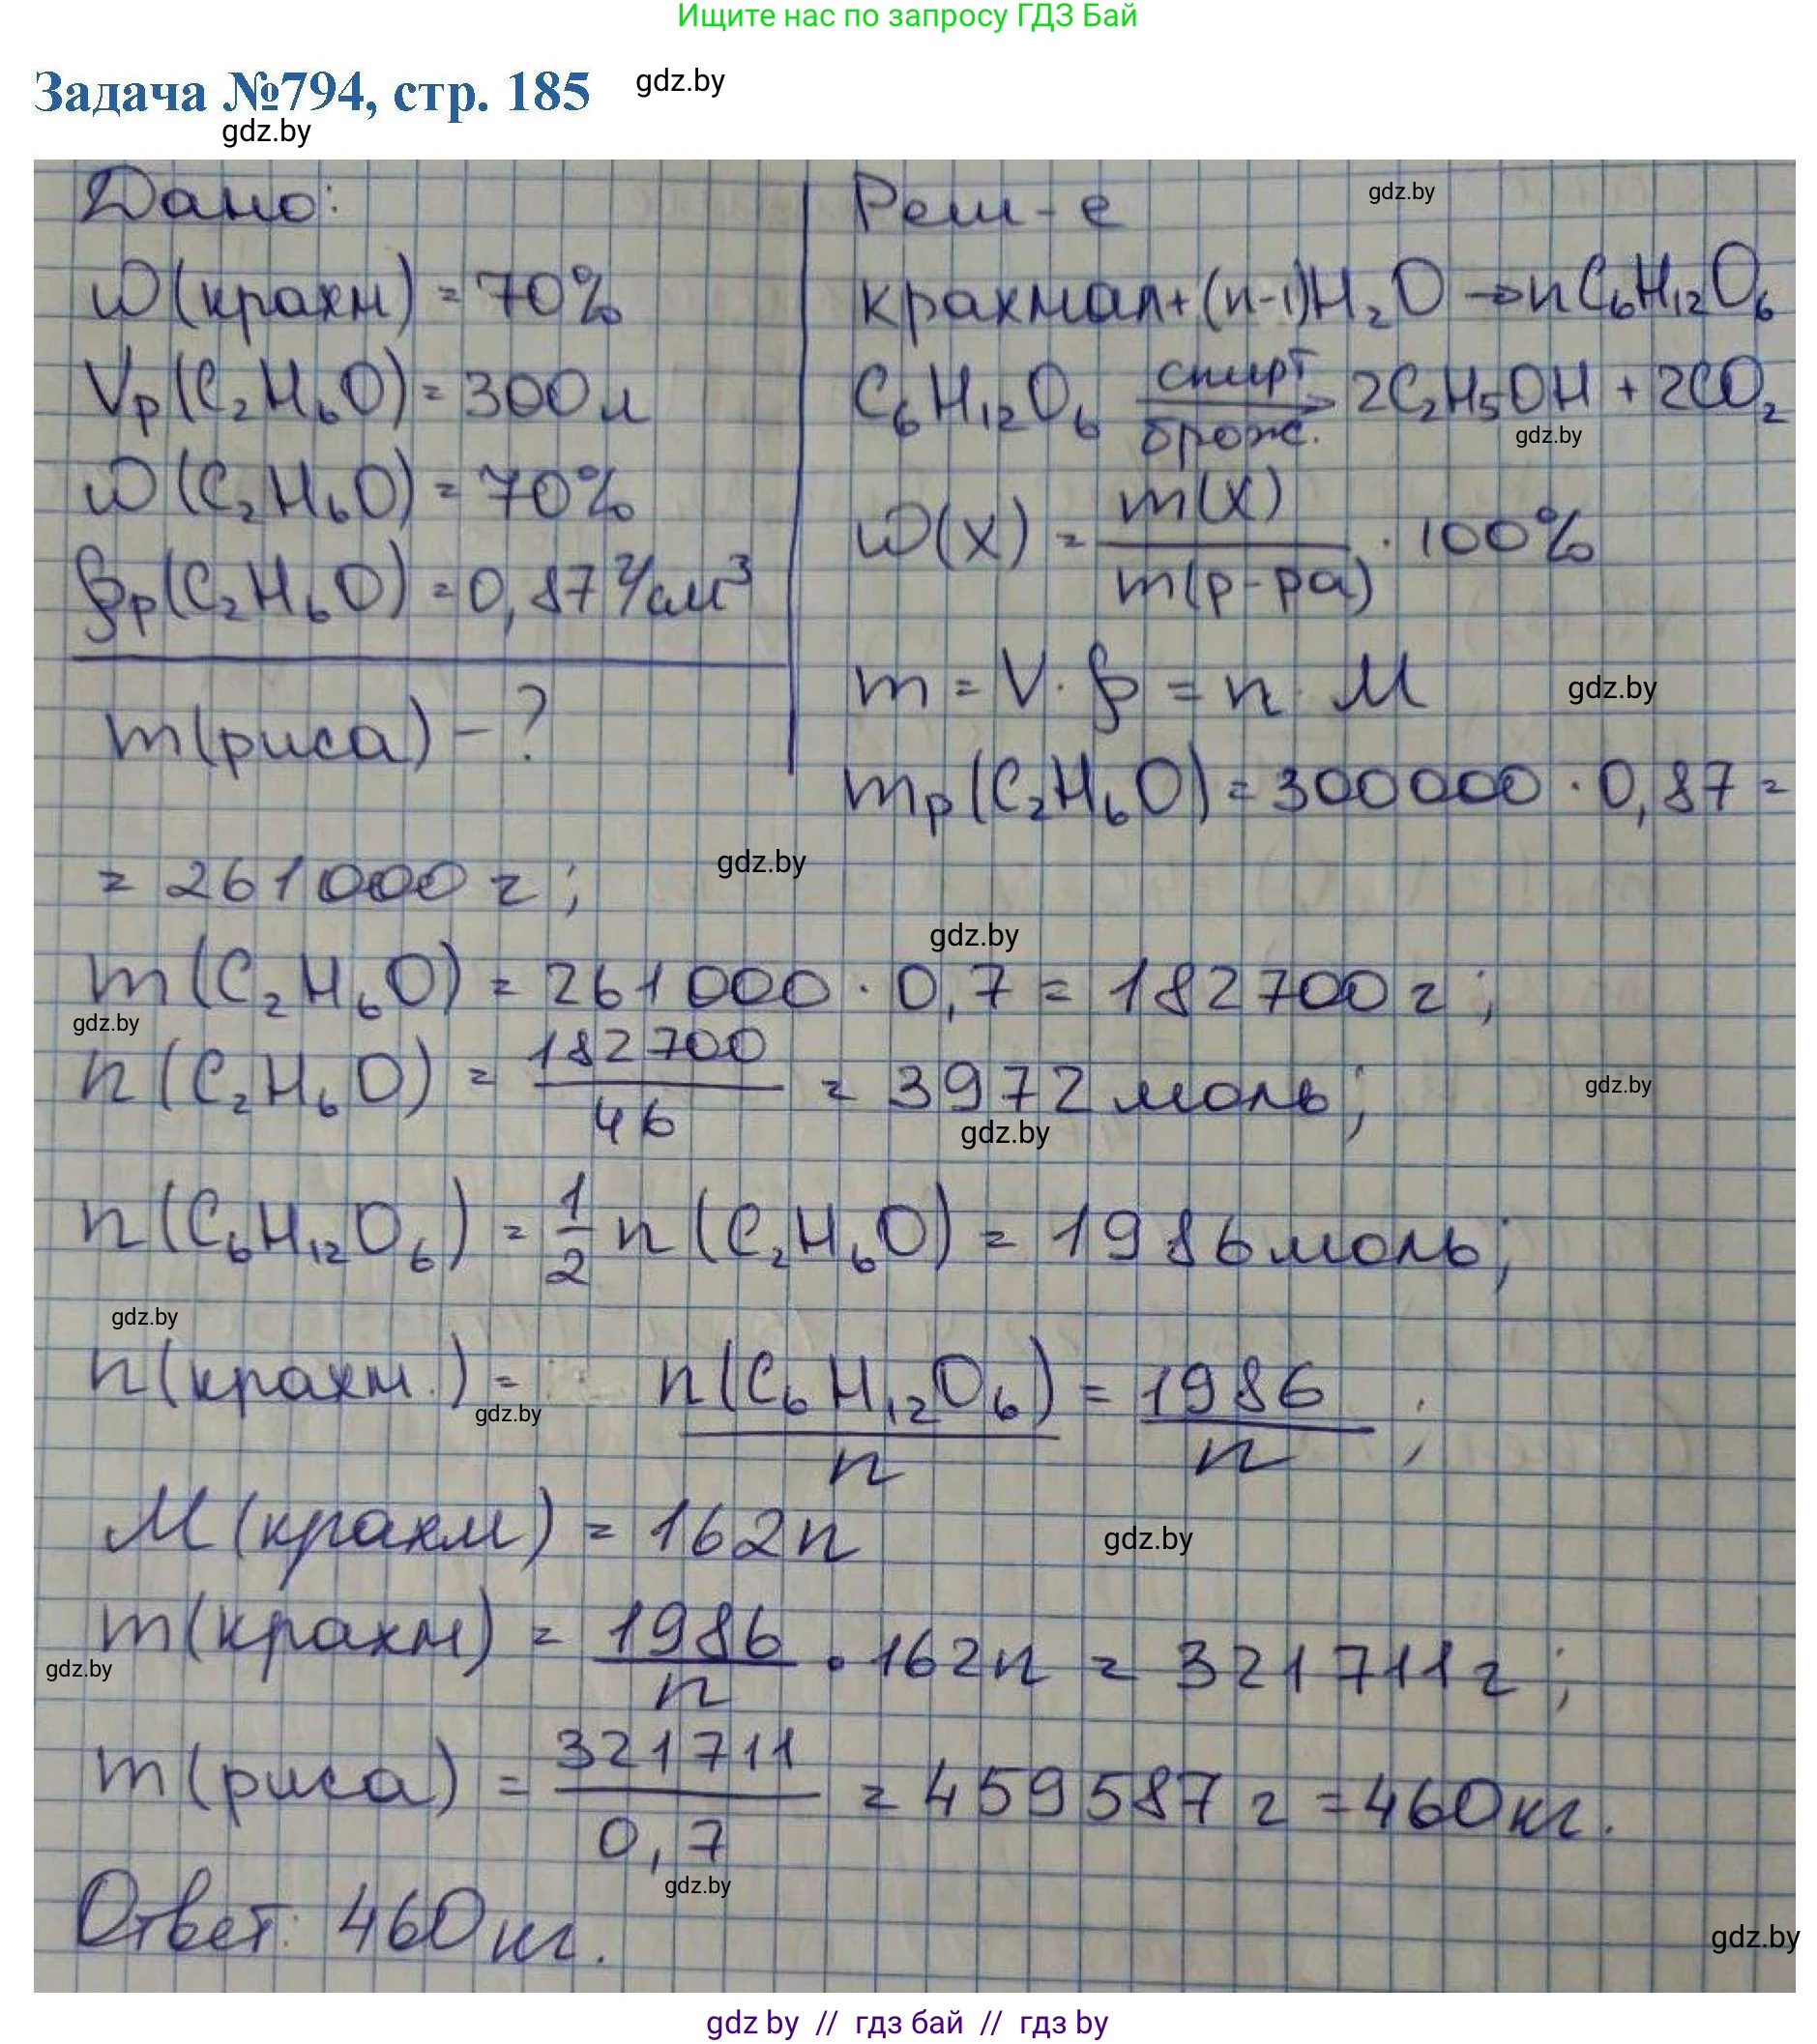 Ищите нас по запросу ГДЗ Бай
Задача №794, стр. 185
gdz.by
gdz.by
Дано:
ω(крахм) = 70%
Vр(C₂H₆O) = 300л
ω(C₂H₆O) = 70%
ρр(C₂H₆O) = 0,87 г/см³
m(риса) - ?
Реш-е
gdz.by
крахмал + (n-1)H₂O → nC₆H₁₂O₆
C₆H₁₂O₆ спирт брож. → 2C₂H₅OH + 2CO₂
gdz.by
ω(X) = m(X) / m(р-ра) · 100%
m = V · ρ = n · M
gdz.by
mр(C₂H₆O) = 300000 · 0,87 =
= 261000 г;
gdz.by
gdz.by
m(C₂H₆O) = 261000 · 0,7 = 182700 г;
gdz.by
n(C₂H₆O) = 182700 / 46 = 3972 моль;
gdz.by
gdz.by
n(C₆H₁₂O₆) = 1/2 n(C₂H₆O) = 1986 моль;
gdz.by
n(крахм.) = n(C₆H₁₂O₆) / n = 1986 / n ;
gdz.by
M(крахм) = 162n
gdz.by
m(крахм) = 1986 / n · 162n = 321711 г;
gdz.by
m(риса) = 321711 / 0,7 = 459587 г = 460 кг.
gdz.by
Ответ: 460 кг.
gdz.by
gdz.by // гдз бай // гдз by